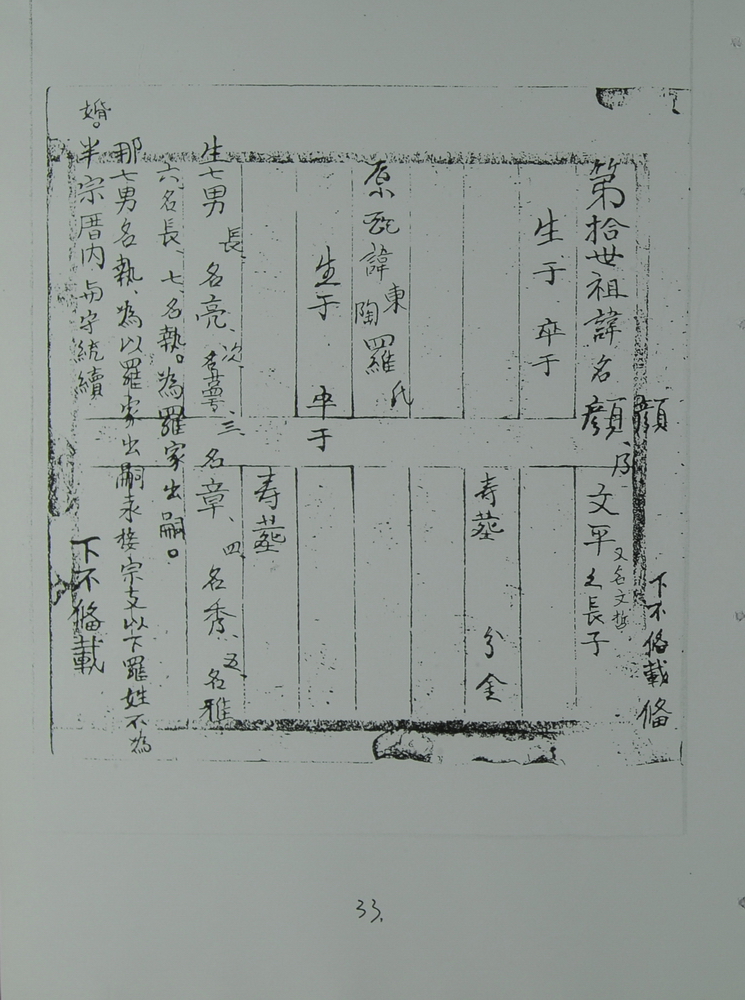 顏
下不俻載 俻
第拾世祖諱名顏乃文平又名文哲之長子
生于 卒于
寿墓 分金
原配諱東陶羅氏
生于 卒于
寿墓
生七男 長、名亮、次、名萼、三、名章、四、名秀、五、名雅
六、名長、七、名執。為羅家出嗣。
那七男名執、為以羅家出嗣永接宗支以下羅姓不為
婚。半宗厝内 守統續 下不俻載
33.